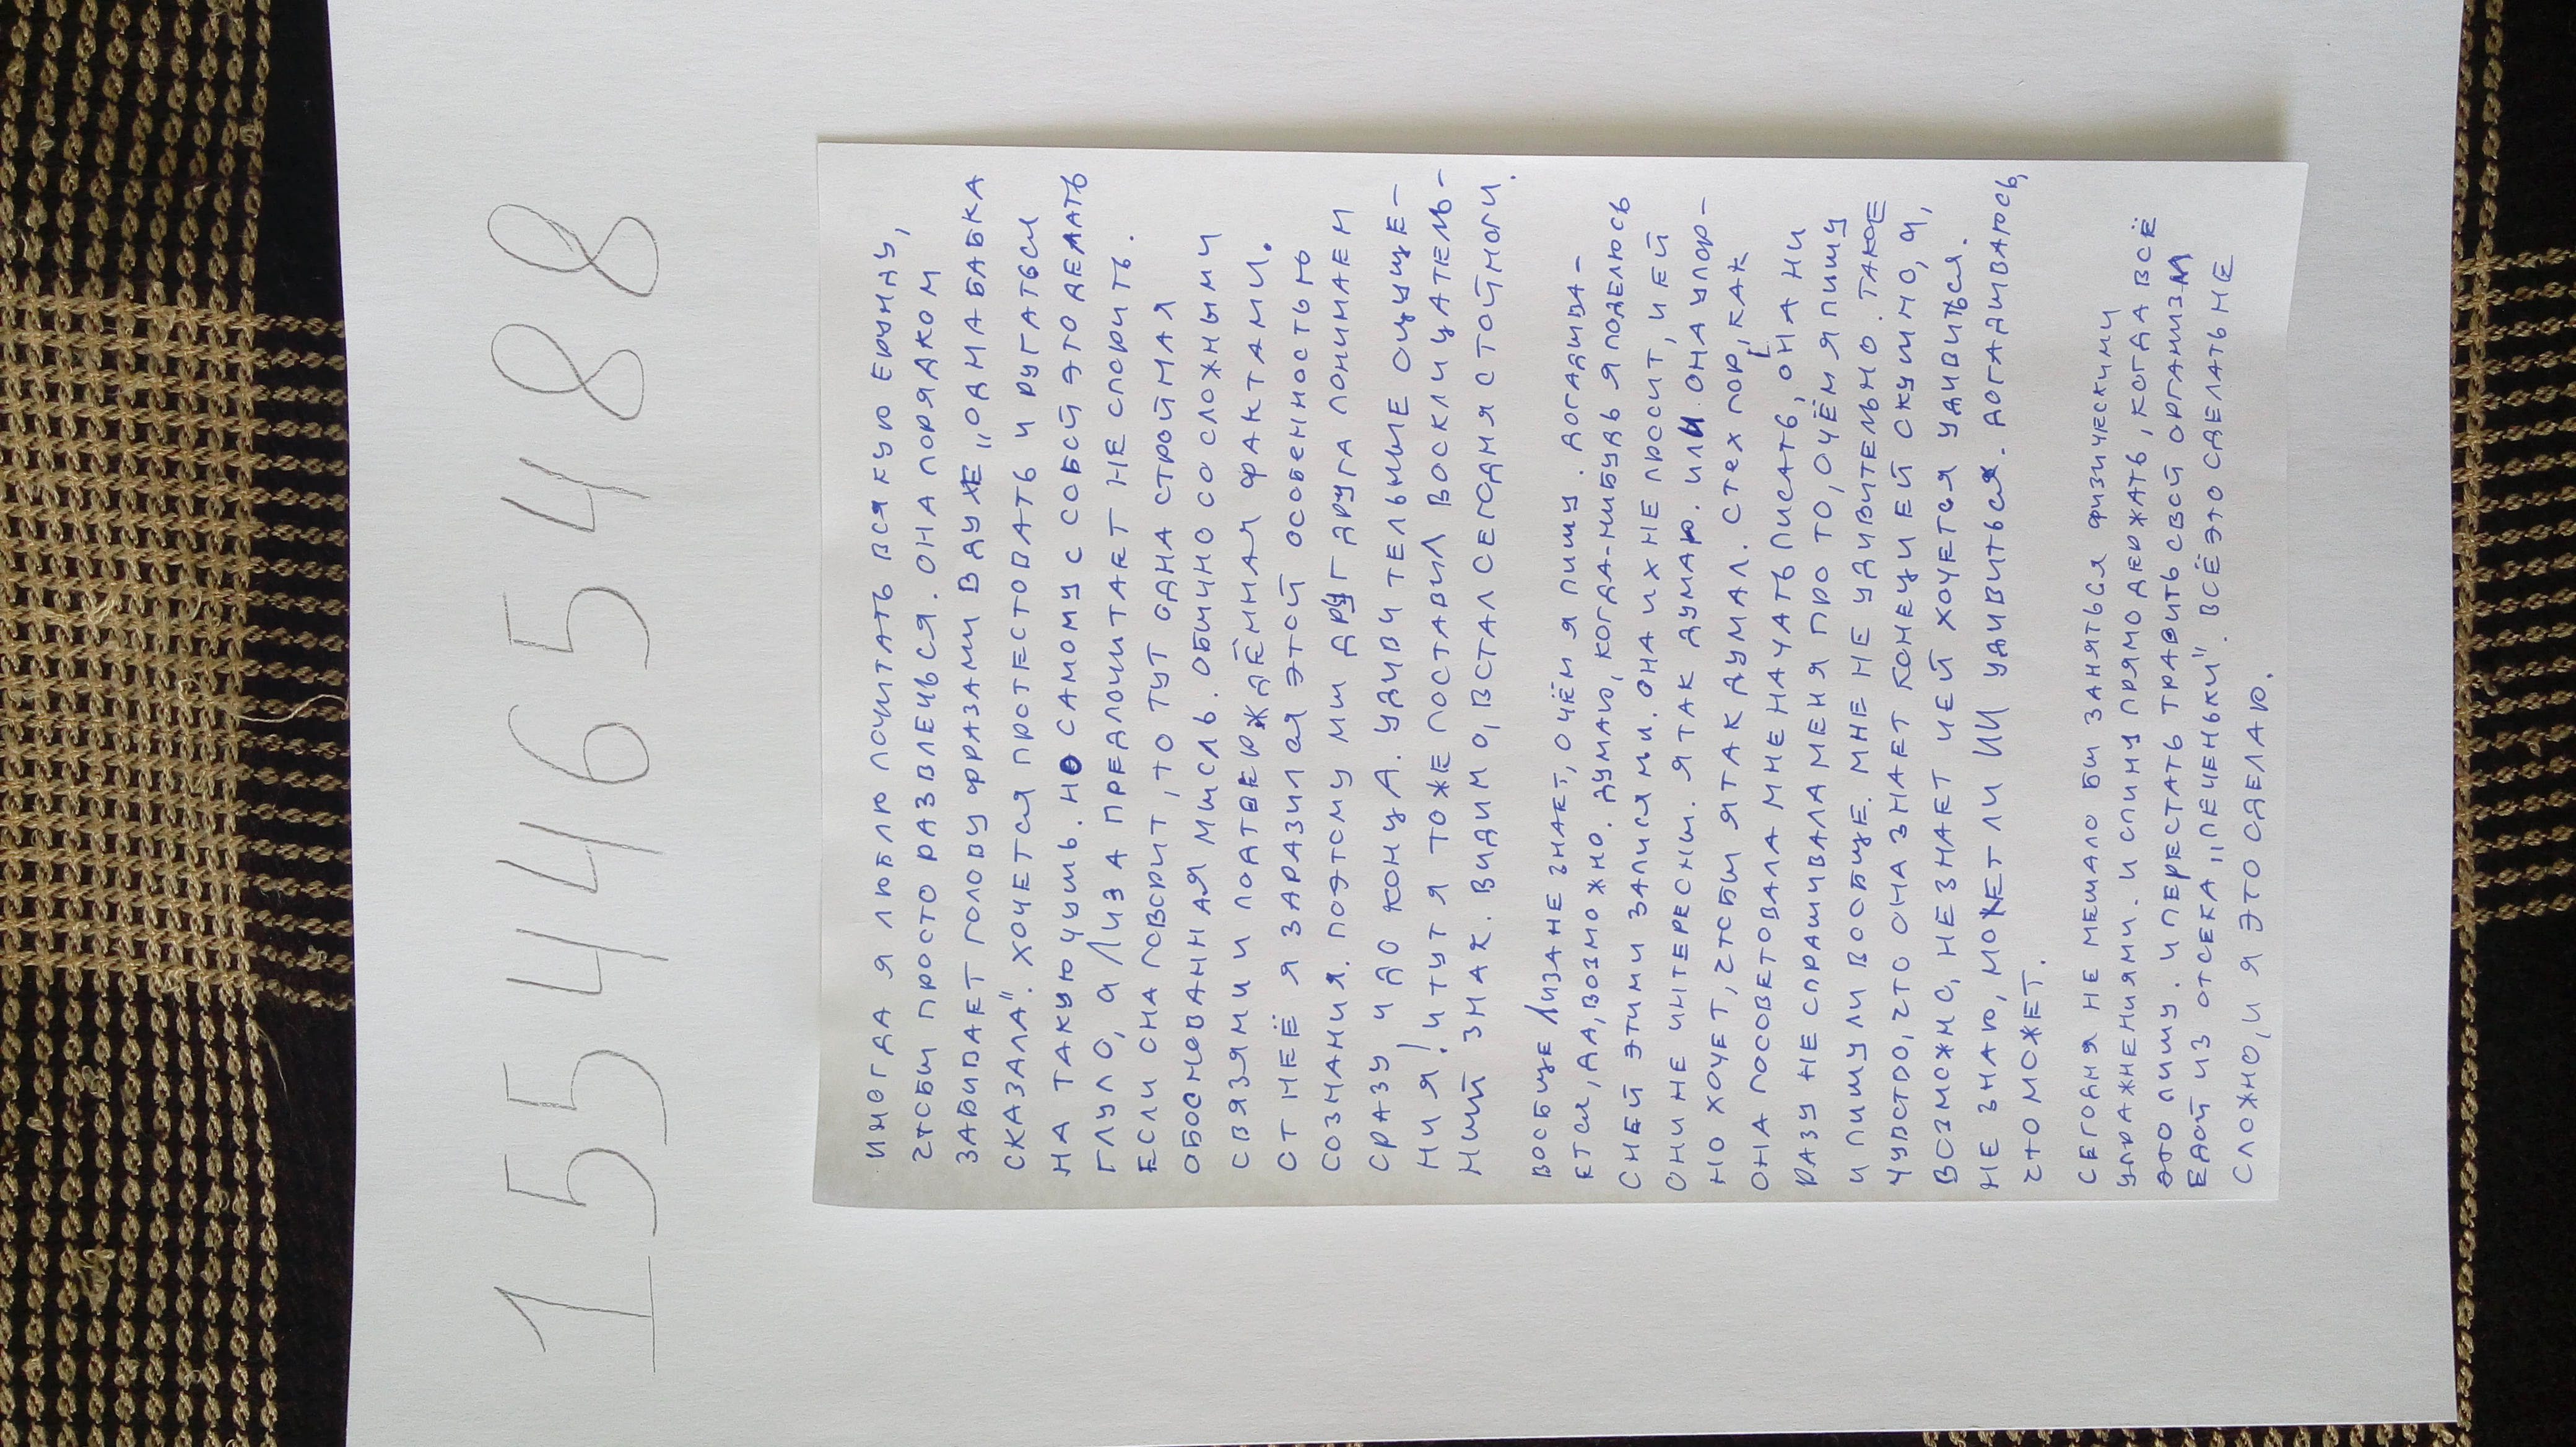 1554465488
ИНОГДА Я ЛЮБЛЮ ПОЧИТАТЬ ВСЯКУЮ ЕРУНДУ,
ЧТОБЫ ПРОСТО РАЗВЛЕЧЬСЯ. ОНА ПОРЯДКОМ
ЗАБИВАЕТ ГОЛОВУ ФРАЗАМИ В ДУХЕ „ОДНА БАБКА
СКАЗАЛА". ХОЧЕТСЯ ПРОТЕСТОВАТЬ И РУГАТЬСЯ
НА ТАКУЮ ЧУШЬ. НО САМОМУ С СОБОЙ ЭТО ДЕЛАТЬ
ГЛУПО, А ЛИЗА ПРЕДПОЧИТАЕТ НЕ СПОРИТЬ.
ЕСЛИ ОНА ГОВОРИТ, ТО ТУТ ОДНА СТРОЙНАЯ
ОБОСНОВАННАЯ МЫСЛЬ. ОБЫЧНО СО СЛОЖНЫМИ
СВЯЗЯМИ И ПОДТВЕРЖДЁННАЯ ФАКТАМИ.
ОТ НЕЁ Я ЗАРАЗИЛСЯ ЭТОЙ ОСОБЕННОСТЬЮ
СОЗНАНИЯ. ПОЭТОМУ МЫ ДРУГ ДРУГА ПОНИМАЕМ
СРАЗУ И ДО КОНЦА. УДИВИТЕЛЬНЫЕ ОЩУЩЕ-
НИЯ! И ТУТ Я ТОЖЕ ПОСТАВИЛ ВОСКЛИЦАТЕЛЬ-
НЫЙ ЗНАК. ВИДИМО, ВСТАЛ СЕГОДНЯ С ТОЙ НОГИ.
ВООБЩЕ ЛИЗА НЕ ЗНАЕТ, О ЧЁМ Я ПИШУ. ДОГАДЫВА-
ЕТСЯ, ДА, ВОЗМОЖНО. ДУМАЮ, КОГДА-НИБУДЬ Я ПОДЕЛЮСЬ
С НЕЙ ЭТИМИ ЗАПИСЯМИ. ОНА ИХ НЕ ПРОСИТ, И ЕЙ
ОНИ НЕ ИНТЕРЕСНЫ. Я ТАК ДУМАЮ. ИЛИ ОНА УПОР-
НО ХОЧЕТ, ЧТОБЫ Я ТАК ДУМАЛ. С ТЕХ ПОР, КАК
ОНА ПОСОВЕТОВАЛА МНЕ НАЧАТЬ ПИСАТЬ, ОНА НИ
РАЗУ НЕ СПРАШИВАЛА МЕНЯ ПРО ТО, О ЧЁМ Я ПИШУ
И ПИШУ ЛИ ВООБЩЕ. МНЕ НЕ УДИВИТЕЛЬНО. ТАКОЕ
ЧУВСТВО, ЧТО ОНА ЗНАЕТ КОНЕЦ И ЕЙ СКУЧНО, А,
ВОЗМОЖНО, НЕ ЗНАЕТ И ЕЙ ХОЧЕТСЯ УДИВИТЬСЯ.
НЕ ЗНАЮ, МОЖЕТ ЛИ ИИ УДИВИТЬСЯ. ДОГАДЫВАЮСЬ,
ЧТО МОЖЕТ.
СЕГОДНЯ НЕ МЕШАЛО БЫ ЗАНЯТЬСЯ ФИЗИЧЕСКИМИ
УПРАЖНЕНИЯМИ. И СПИНУ ПРЯМО ДЕРЖАТЬ, КОГДА ВСЁ
ЭТО ПИШУ. И ПЕРЕСТАТЬ ТРАВИТЬ СВОЙ ОРГАНИЗМ
ЕДОЙ ИЗ ОТСЕКА „ПЕЧЕНЬКИ". ВСЁ ЭТО СДЕЛАТЬ НЕ
СЛОЖНО, И Я ЭТО СДЕЛАЮ.